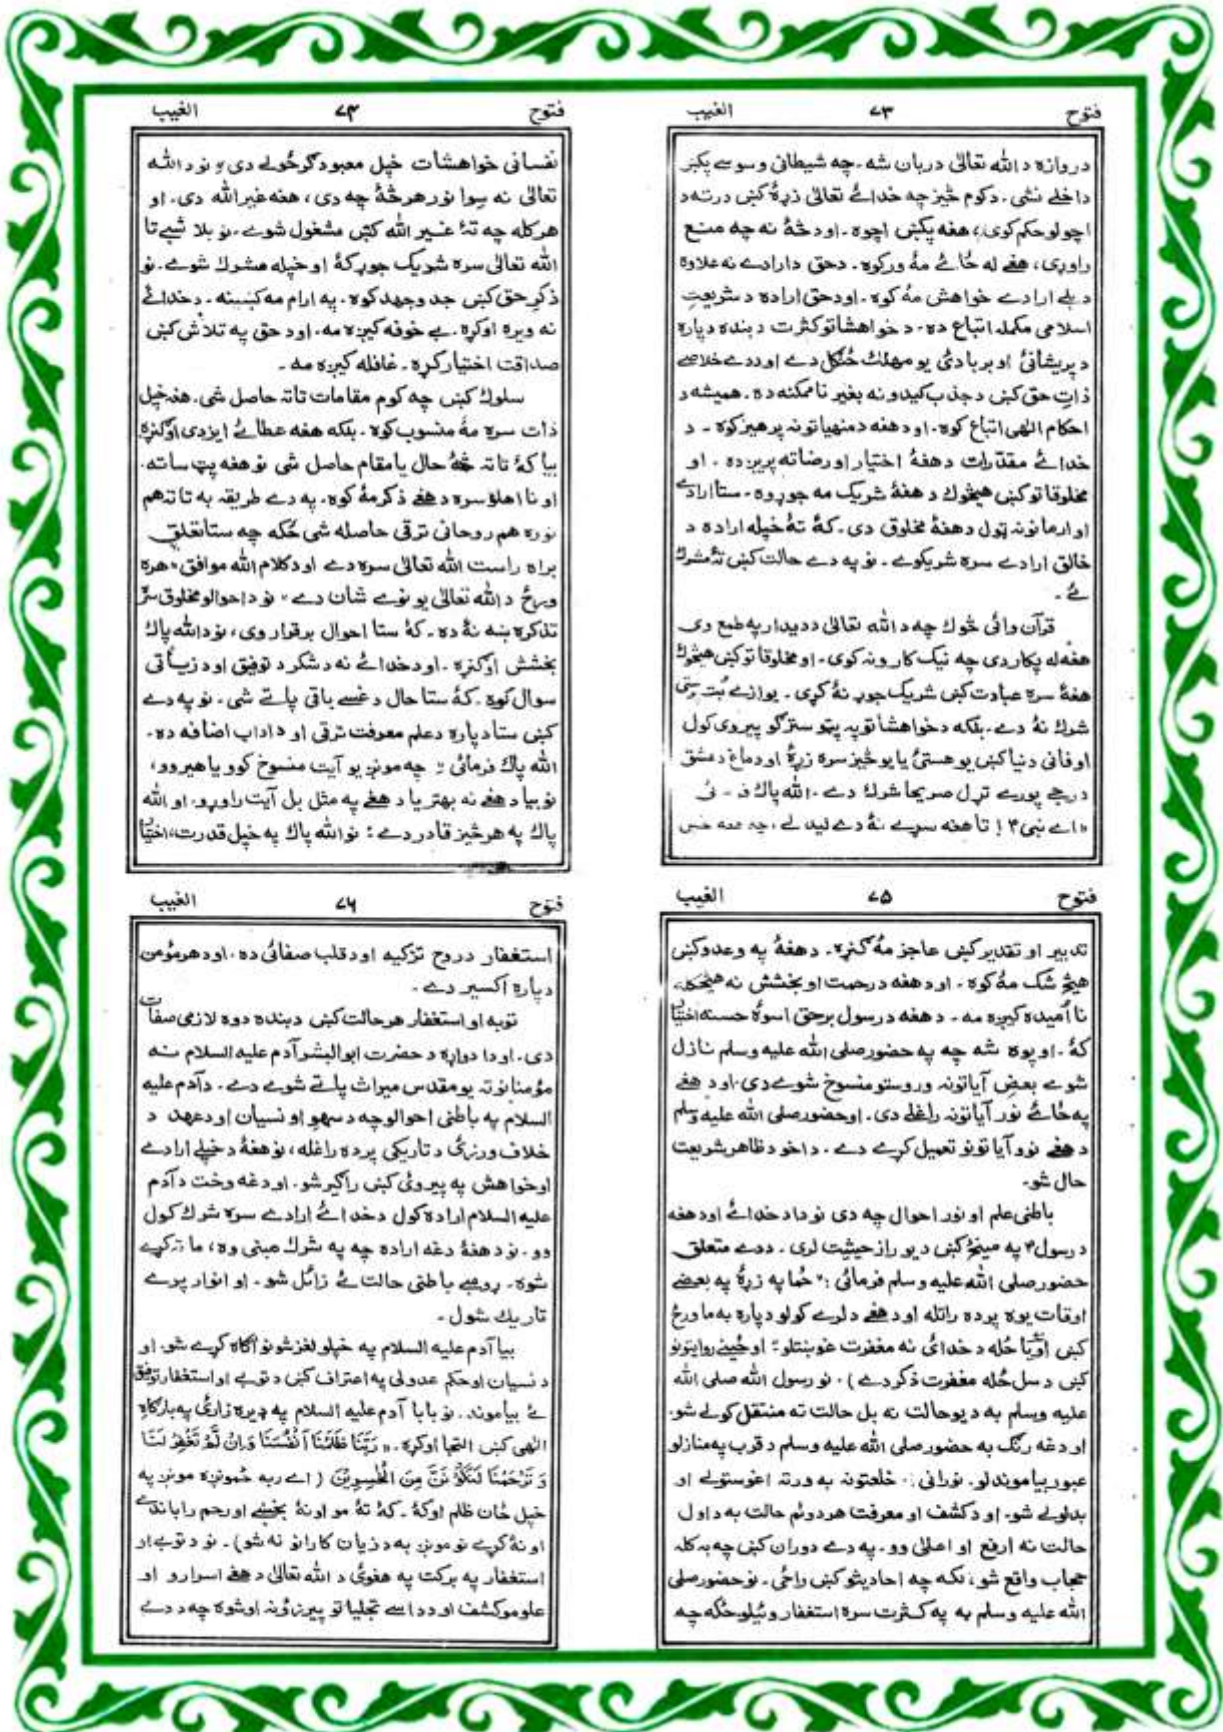 فتوح ۷۳ الغیب
دروازه د الله تعالیٰ دربان شه . چه شیطانی وسوسے پکښ
داخلے نشی . د کوم څیز چه خدائے تعالیٰ زړۀ کښ درته د
اچولو حکم کوی ، هغه پکښ اچوه . او د څۀ نه چه منع
راوړی ، هغے له ځائے مۀ ورکوه . د حق د ارادے نه علاوه
د بلے ارادے خواهش مۀ کوه . او د حق اراده د شریعتِ
اسلامی مکمله اتباع ده . د خواهشاتو کثرت د بنده دپاره
د پریشانئ او بربادئ یو مهلک ځنګل دے او د دے خلاصے
ذاتِ حق کښ د جذب کیدو نه بغیر ناممکنه ده . همیشه د
احکام الٰهی اتباع کوه . او د هغه د منهیاتو نه پرهیز کوه ۔ د
خدائے مقدّرات د هغۀ اختیار او رضا ته پریږده . او
مخلوقاتو کښ هیڅوک د هغۀ شریک مه جوړوه . ستا ارادے
او ارمانونه ټول د هغۀ مخلوق دی . کۀ تۀ خپله اراده د
خالق ارادے سره شریکوے . نو په دے حالت کښ تۀ مشرک
ئے ۔
قرآن وائی څوک چه د الله تعالیٰ د دیدار په طمع وی
هغۀ له پکار دی چه نیک کارونه کوی . او مخلوقاتو کښ هیڅوک
هغۀ سره عبادت کښ شریک جوړ نۀ کړی . یوازے بُت پرستی
شرک نۀ دے . بلکه د خواهشاتو په پټو سترګو پیروی کول
او فانی دنیا کښ یو هستئ یا یو څیز سره زړۀ او دماغ د عشق
درجے پورے تړل صریحا شرک دے . الله پاک
" اے نبی ؐ ! تا هغه سړے نۀ دے لیدلے ، چه هغه خپل
فتوح ۷۴ الغیب
نفسانی خواهشات خپل معبود ګرځولے دی " نو د الله
تعالیٰ نه سِوا نور هر څۀ چه دی ، هغه غیر الله دی . او
هر کله چه تۀ غیر الله کښ مشغول شوے . نو بلا شبے تا
الله تعالیٰ سره شریک جوړ کۀ او خپله مشرک شوے . نو
ذکرِ حق کښ جد و جهد کوه . په ارام مه کښینه . د خدائے
نه ویره اوکړه . بے خوفه کیږه مه . او د حق په تلاش کښ
صداقت اختیار کړه . غافله کیږه مه ۔
سلوک کښ چه کوم مقامات تا ته حاصل شی . هغه خپل
ذات سره مۀ منسوب کوه . بلکه هغه عطائے ایزدی اوګنړه
بیا کۀ تا ته څۀ حال یا مقام حاصل شی نو هغه پټ ساته .
او نا اهلؤ سره د هغے ذکر مۀ کوه . په دے طریقه به تا ته هم
نوره هم روحانی ترقی حاصله شی ځکه چه ستا تعلق
براه راست الله تعالیٰ سره دے او د کلام الله موافق " هره
ورځ د الله تعالیٰ یو نوے شان دے " نو د احوالو مخلوق سره
تذکره ښه نۀ ده . کۀ ستا احوال برقرار وی ، نو د الله پاک
بخشش اوګنړه . او د خدائے نه د شکر د توفیق او د زیاتی
سوال کوه . کۀ ستا حال دغسے باقی پاتے شی . نو په دے
کښ ستا دپاره د علم معرفت ترقی او د اداب اضافه ده .
الله پاک فرمائی :" چه مونږ یو آیت منسوخ کوو یا هیروو ،
نو بیا د هغے نه بهتر یا د هغے په مثل بل آیت راوړو . او الله
پاک په هر څیز قادر دے : نو الله پاک په خپل قدرت ، اختیار
فتوح ۷۵ الغیب
تدبیر او تقدیر کښ عاجز مۀ ګنړه . د هغۀ په وعدو کښ
هیڅ شک مۀ کوه . او د هغه د رحمت او بخشش نه هیڅکله
نا اُمیده کیږه مه . د هغه د رسول برحق اسوۀ حسنه اختیار
کۀ . او پوه شه چه په حضور صلی الله علیه وسلم نازل
شوے بعض آیاتونه وروستو منسوخ شوے دی . او د هغے
په ځائے نور آیاتونه راغلے دی . او حضور صلی الله علیه وسلم
د هغے نوو آیاتونو تعمیل کړے دے . دا خو د ظاهر شریعت
حال شو .
باطنی علم او نور احوال چه دی نو دا د خدائے او د هغه
د رسول ؐ په مینځ کښ د یو راز حیثیت لری . د دے متعلق
حضور صلی الله علیه وسلم فرمائی :" ځما په زړۀ په بعضے
اوقات یوه پرده راتله او د هغے د لرے کولو دپاره به ما ورځ
کښ اویا ځله د خدائی نه مغفرت غوښتلو :" او ځینے روایتونو
کښ د سل ځله مغفرت ذکر دے ) . نو رسول الله صلی الله
علیه وسلم به د یو حالت نه بل حالت ته منتقل کولے شو .
او دغه رنګ به حضور صلی الله علیه وسلم د قرب په منازلو
عبور بیا موندلو . نورانی خلعتونه به ورته اغوستولے او
بدلولے شو . او د کشف او معرفت هر دوئم حالت به د اول
حالت نه ارفع او اعلیٰ وو . په دے دوران کښ چه به کله
حجاب واقع شو ، لکه چه احادیثو کښ راځی . نو حضور صلی
الله علیه وسلم به په کثرت سره استغفار وئیلو ځکه چه
فتوح ۷۶ الغیب
استغفار د روح تزکیه او د قلب صفائی ده . او د هر مؤمن
دپاره اکسیر دے .
توبه او استغفار هر حالت کښ د بنده دوه لازمی صفات
دی . او دا دواړه د حضرت ابو البشر آدم علیه السلام نه
مؤمنانو ته یو مقدس میراث پاتے شوے دے . د آدم علیه
السلام په باطنی احوالو چه د سهو او نسیان او د عهد د
خلاف ورزئ د تاریکی پرده راغله ، نو هغۀ د خپلے ارادے
او خواهش په پیروئ کښ راګیر شو . او دغه وخت د آدم
علیه السلام اراده کول د خدائے ارادے سره شرک کول
وو . نو د هغۀ دغه اراده چه په شرک مبنی وه ، ماته کړے
شوه . رومبے باطنی حالت ئے زائل شو . او انوار پرے
تاریک شول .
بیا آدم علیه السلام په خپلو لغزشونو آګاه کړے شو . او
د نسیان او حکم عدولی په اعتراف کښ د توبے او استغفار توفیق
ئے بیا موند . نو بابا آدم علیه السلام په ډیره زارئ په بارګاهِ
الٰهی کښ التجا اوکړه . " رَبَّنَا ظَلَمْنَا اَنْفُسَنَا وَ اِنْ لَّمْ تَغْفِرْ لَنَا
وَ تَرْحَمْنَا لَنَكُوْنَنَّ مِنَ الْخٰسِرِيْنَ ( اے ربه ځمونږه مونږ په
خپل ځان ظلم اوکۀ . کۀ تۀ مو اونۀ بخښے او رحم را باندے
اونۀ کړے نو مونږ به د زیان کارانو نه شو ) . نو د توبے او
استغفار په برکت په هغوئ د الله تعالیٰ د هغے اسرارو او
علومو کشف او د داسے تجلیاتو پیرزوئنه اوشوه چه د دے